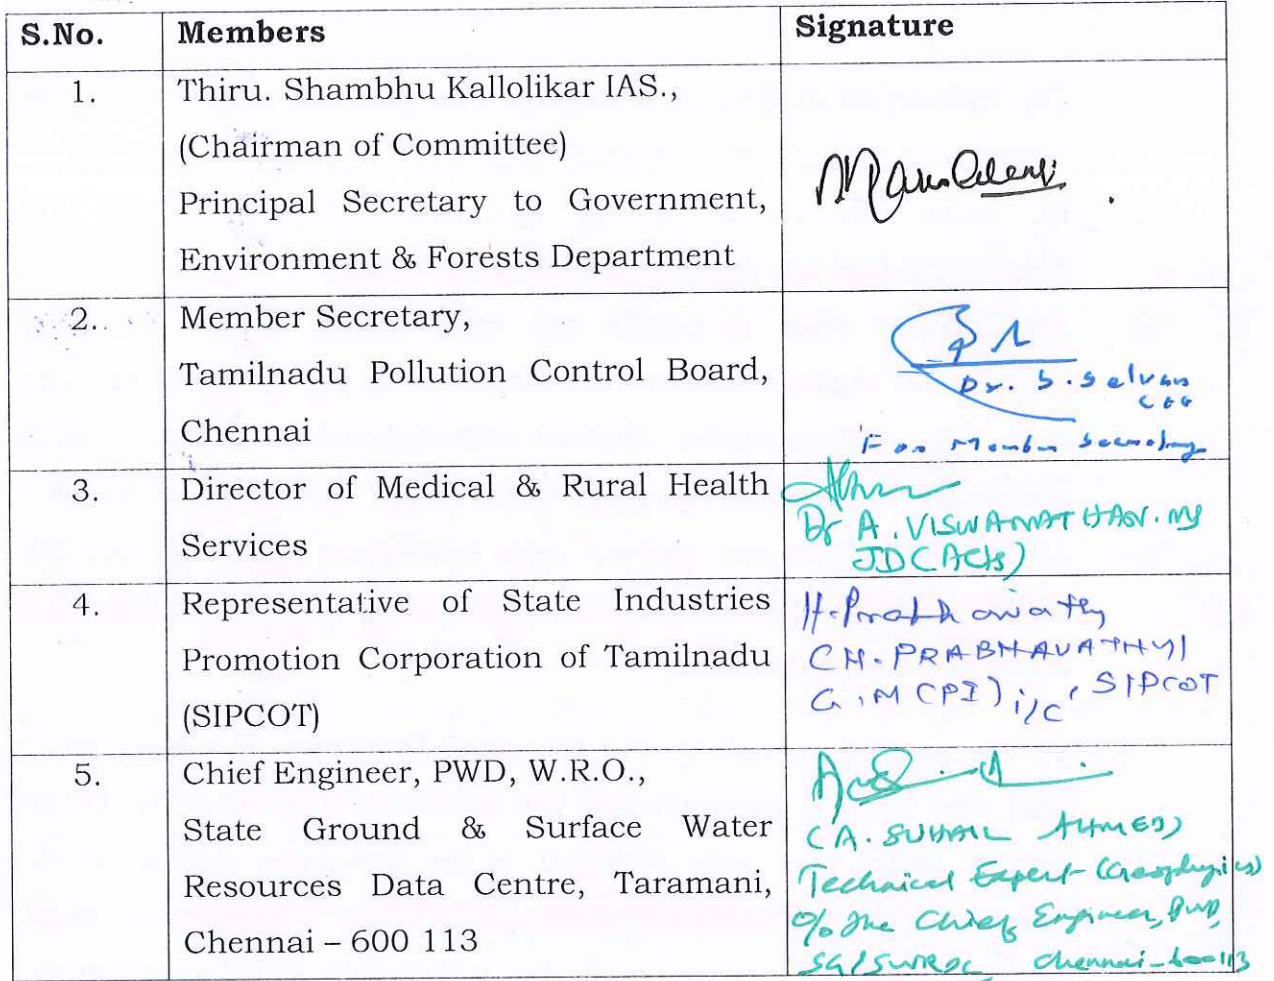 S.No. Members Signature
1. Thiru. Shambhu Kallolikar IAS.,
(Chairman of Committee)
Principal Secretary to Government,
Environment & Forests Department
2. Member Secretary,
Tamilnadu Pollution Control Board,
Chennai
Dr. S. Selvan
For Member Secretary
3. Director of Medical & Rural Health
Services
Dr A. VISWANATHAN. MS
JD (Acts)
4. Representative of State Industries
Promotion Corporation of Tamilnadu
(SIPCOT)
H. Prabhavathy
(H. PRABHAVATHY)
G.M (PI) i/c, SIPCOT
5. Chief Engineer, PWD, W.R.O.,
State Ground & Surface Water
Resources Data Centre, Taramani,
Chennai – 600 113
(A. SUHAIL AHMED)
Technical Expert (Geophysics)
O/o the Chief Engineer, PWD,
SG/SWRDC, Chennai-600113